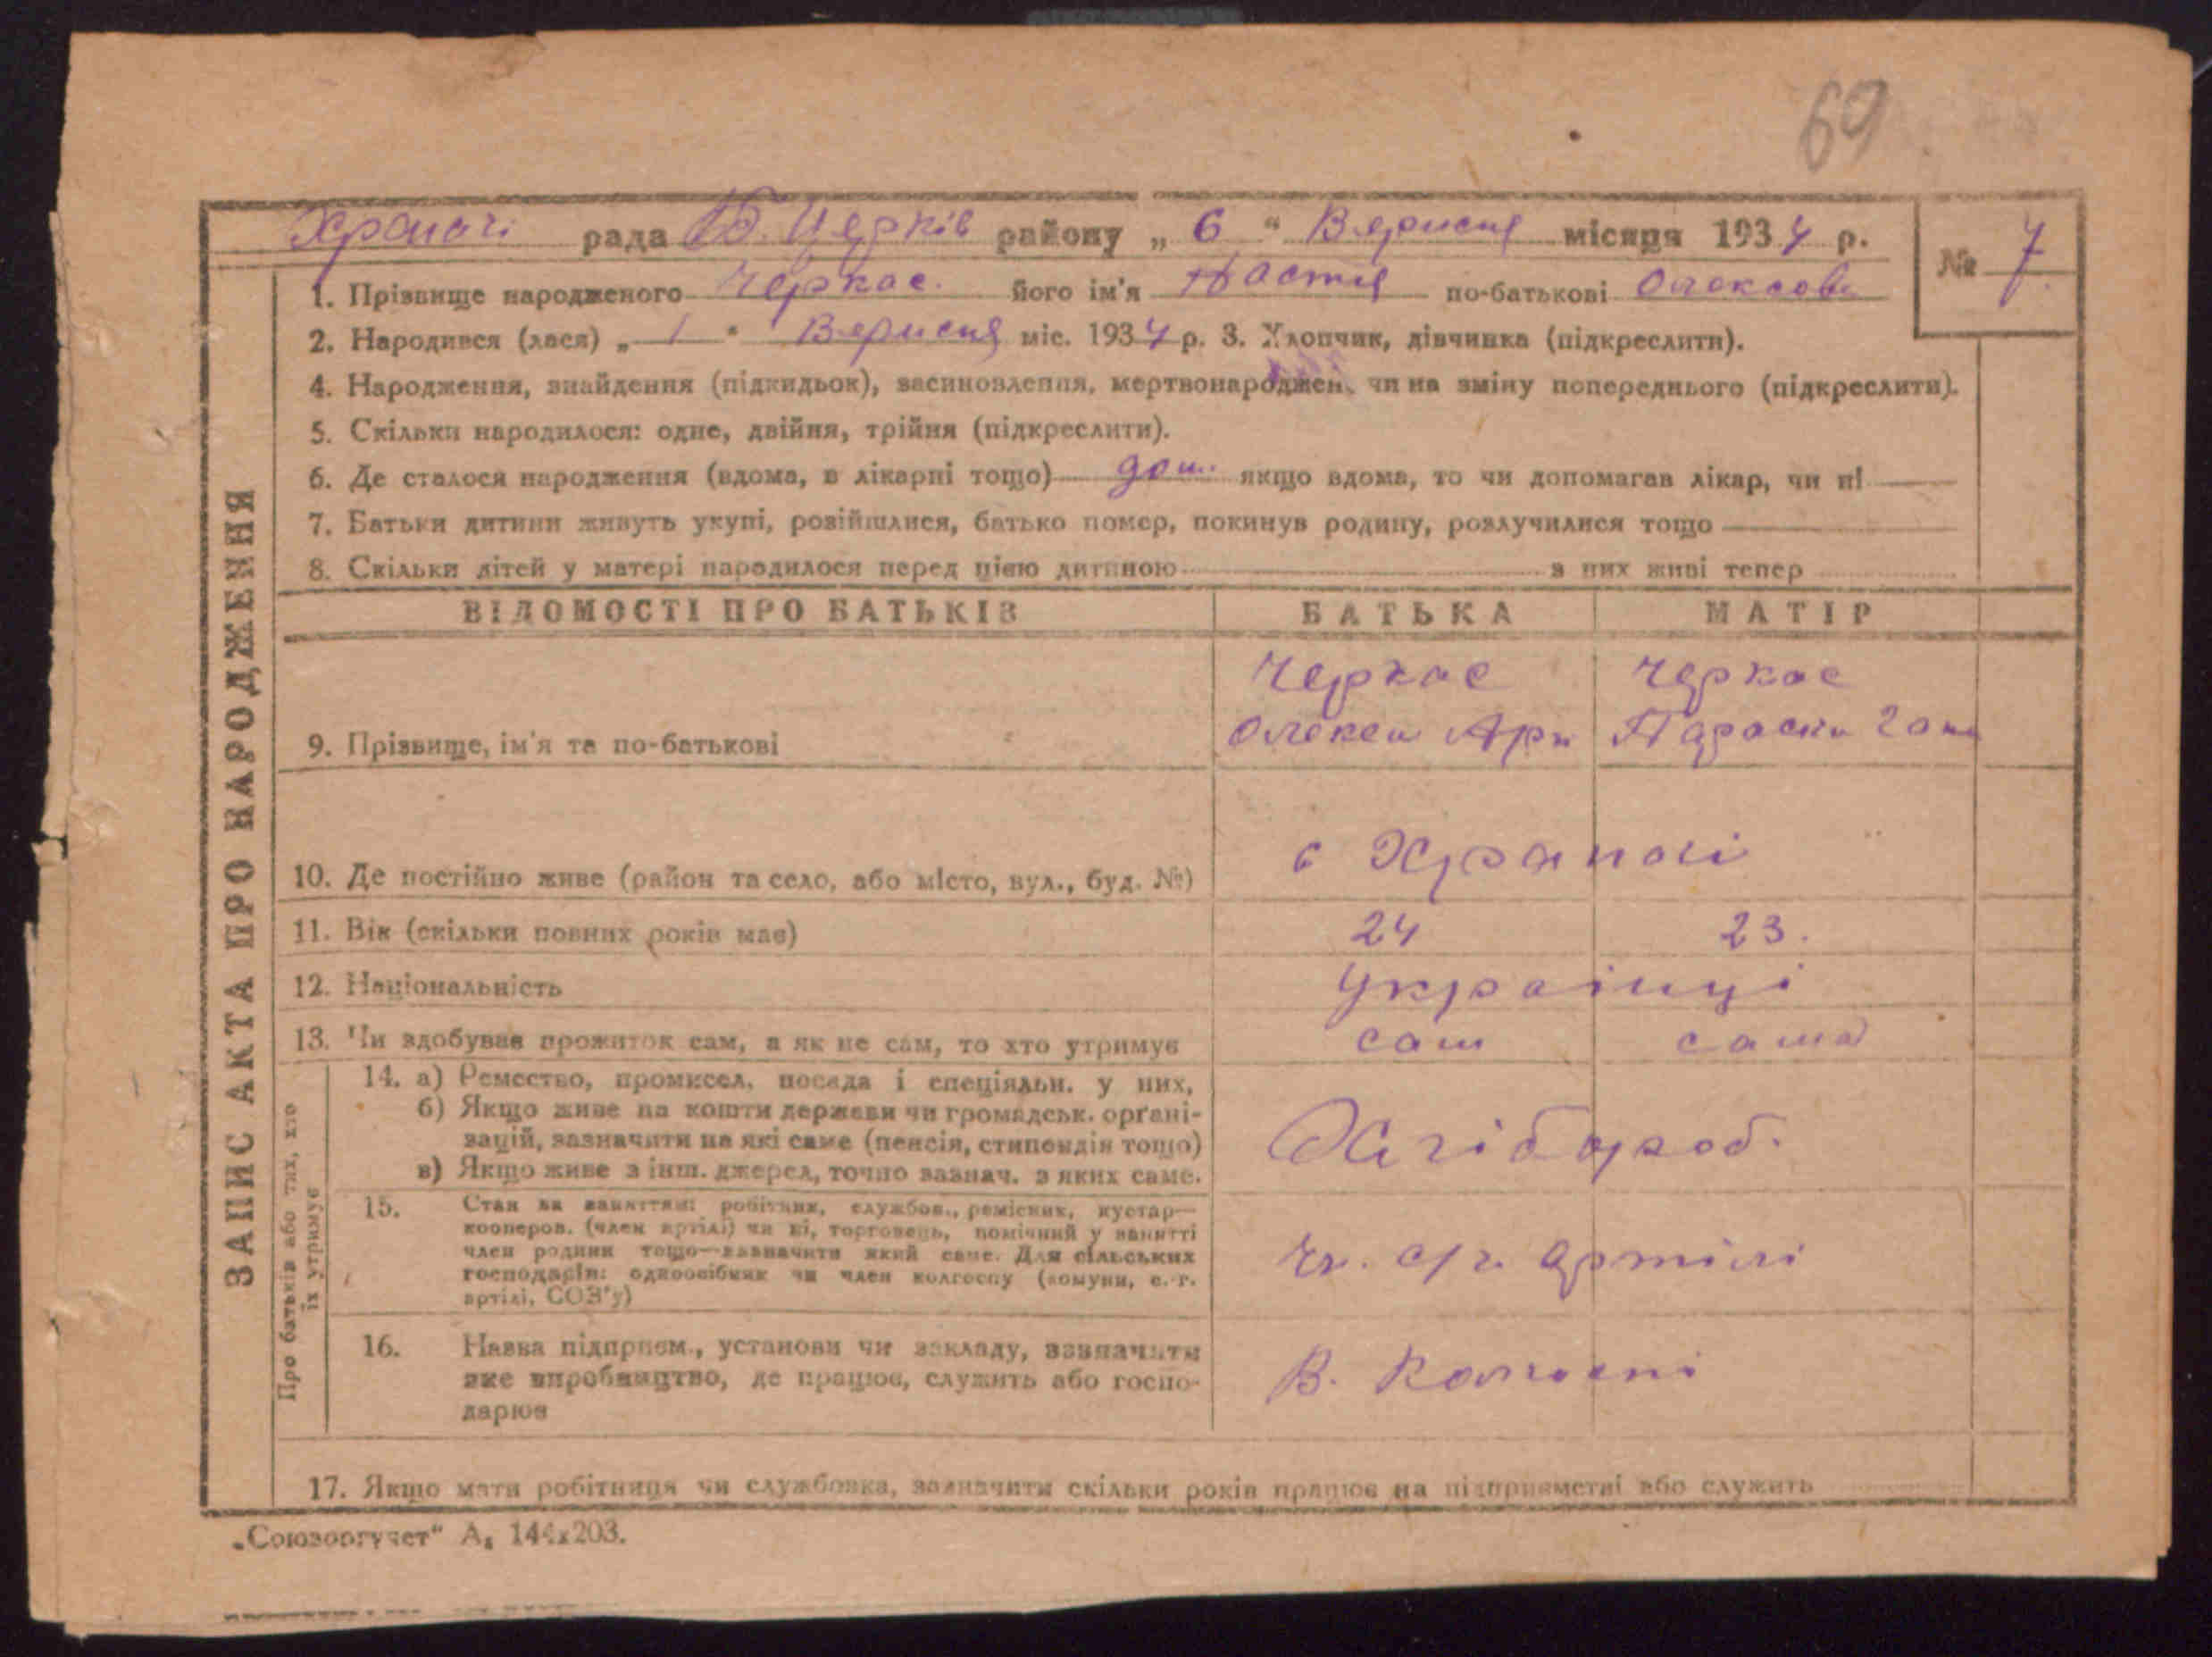 69
Храпачі рада Б. Церків району „ 6 " Вересня місяця 1934 р.
№ 7
1. Прізвище народженого Черкас. його ім'я Настя по-батькові Олексов
2. Народився (лася) „ 1 " Вересня міс. 1934 р. 3. Хлопчик, дівчинка (підкреслити).
4. Народження, знайдення (підкидьок), засиновлення, мертвонароджен. чи на зміну попереднього (підкреслити).
5. Скільки народилося: одне, двійня, трійня (підкреслити).
6. Де сталося народження (вдома, в лікарні тощо) дом. якщо вдома, то чи допомагав лікар, чи ні
7. Батьки дитини живуть укупі, розійшлися, батько помер, покинув родину, розлучилися тощо
8. Скільки дітей у матері народилося перед цією дитиною з них живі тепер
ЗАПИС АКТА ПРО НАРОДЖЕННЯ
ВІДОМОСТІ ПРО БАТЬКІВ БАТЬКА МАТІР
Черкас Черкас
9. Прізвище, ім'я та по-батькові Олекса Параска
10. Де постійно живе (район та село, або місто, вул., буд. №) с Храпачі
11. Вік (скільки повних років має) 24 23.
12. Національність Українці
13. Чи здобуває прожиток сам, а як не сам, то хто утримує сам сама
Про батьків або тих, хто
їх утримує
14. а) Ремество, промисел, посада і спеціяльн. у них,
б) Якщо живе на кошти держави чи громадськ. орґані-
зацій, зазначити на які саме (пенсія, стипендія тощо) Хлібороб.
в) Якщо живе з інш. джерел, точно зазнач. з яких саме.
15. Стан за заняттям: робітник, службов., ремісник, кустар—
кооперов. (член артілі) чи ні, торговець, помічний у занятті
член родини тощо—зазначити який саме. Для сільських
господарів: одноосібник чи член колгоспу (комуни, с.-г.
артілі, СОЗ'у)
Чл. с/г. артілі
16. Назва підприєм., установи чи закладу, зазначити
яке виробництво, де працює, служить або госпо-
дарює
В. Колгоспі
17. Якщо мати робітниця чи службовка, зазначити скільки років працює на підприємстві або служить
„Союзоргучет" А₅ 144х203.